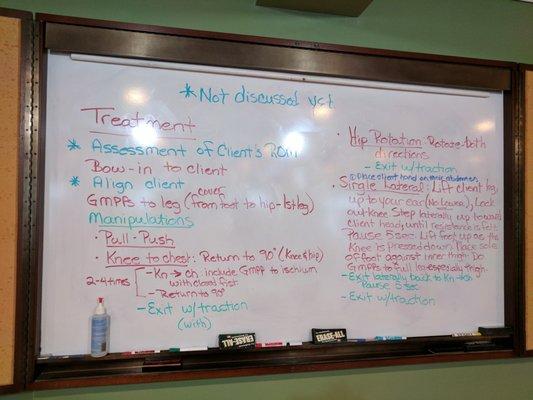 *Not discussed yet
Treatment
* Assessment of Client's ROM
Bow-in to client
* Align client
cover
GMPPs to leg (from foot to hip-1st leg)
Manipulations
• Pull-Push
• Knee to chest: Return to 90° (Knee & hip)
2-4 times
- Kn → ch: include GMPP to ischium
with closed fist
- Return to 90°
- Exit w/traction
(with)
• Hip Rotation: Rotate both
directions
- Exit w/traction
Place client hand on their abdomen
• Single Lateral: Lift client leg
up to your ear (No lower), Lock
out Knee Step laterally up toward
client head, until resistance is felt.
Pause 5 sec. Lift foot up as the
Knee is pressed down. Place sole
of foot against inner thigh. Do
GMPPs to full leg especially thigh.
- Exit laterally back to Kn → ch
Pause 5 sec
- Exit w/traction
ERASE-ALL
ERASE-ALL